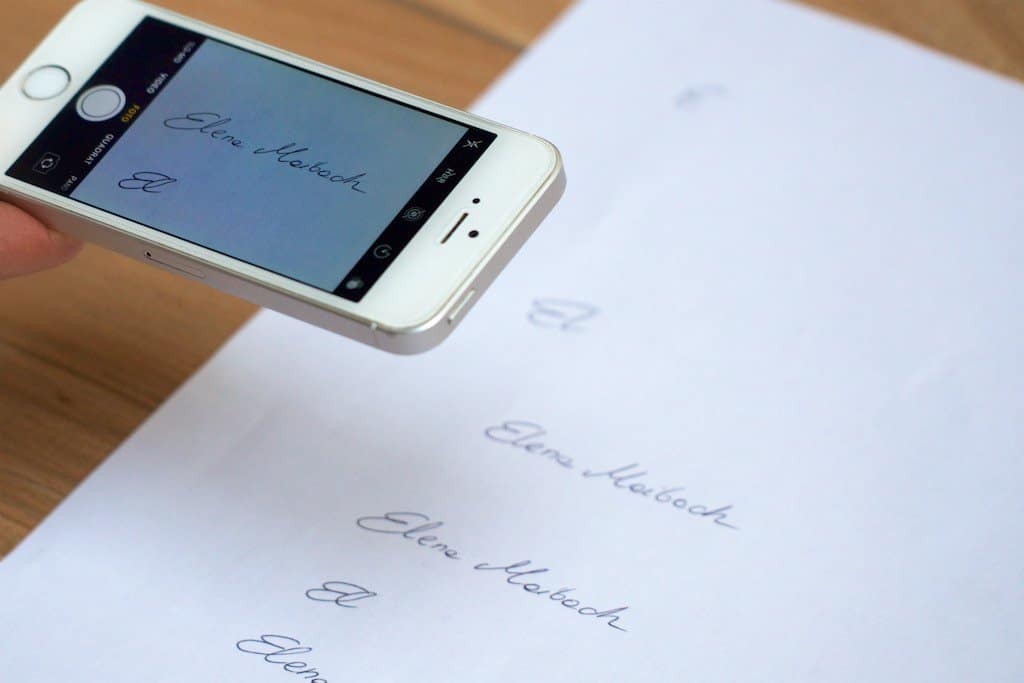 SLO-MO
VIDEO
FOTO
QUADRAT
PANO
HDR
Elena Maibach
El
El
Elena Maibach
Elena Maibach
El
Elena